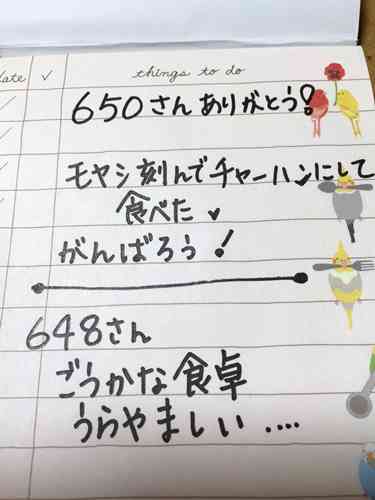 date ✓ things to do
650さんありがとう!
モヤシ刻んでチャーハンにして
食べた✓
がんばろう!
648さん
ごうかな食卓
うらやましい‥‥